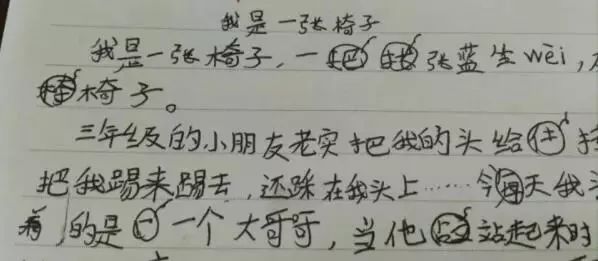 我是一张椅子
我是一张椅子，一把我张蓝色wēi，
椅子。
三年级的小朋友老实把我的头给住
把我踢来踢去，还踩在我头上……今每天我
的是一个大哥哥，当他站起来时